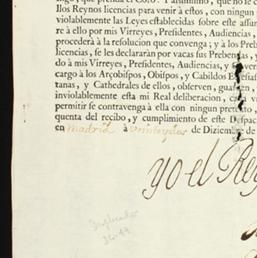 que, que prenda el Coro. Y asimismo, que no se c
llos Reynos licencias para venir à estos, con ningun
violablemente las Leyes establecidas sobre este assun
re à ello por mis Virreyes, Presidentes, Audiencias,
procederà à la resolucion que convenga; y à los Preb
licencias, se les declararàn por vacas sus Prebendas, y
do à mis Virreyes, Presidentes, Audiencias, y
cargo à los Arçobispos, Obispos, y Cabildos
tanas, y Cathedrales de ellos, observen, guarden,
inviolablemente esta mi Real deliberacion,
permitir se contravenga à ella con ningun pretexto,
quenta del recibo, y cumplimiento de este Despac
en madrid à veinte y dos de Diziembre de
yo el Rey